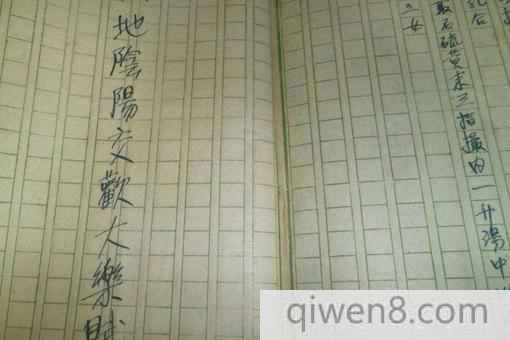 取石硫黄末三指撮内一升湯中
女
地陰陽交歡大樂賦
qiwen8.com